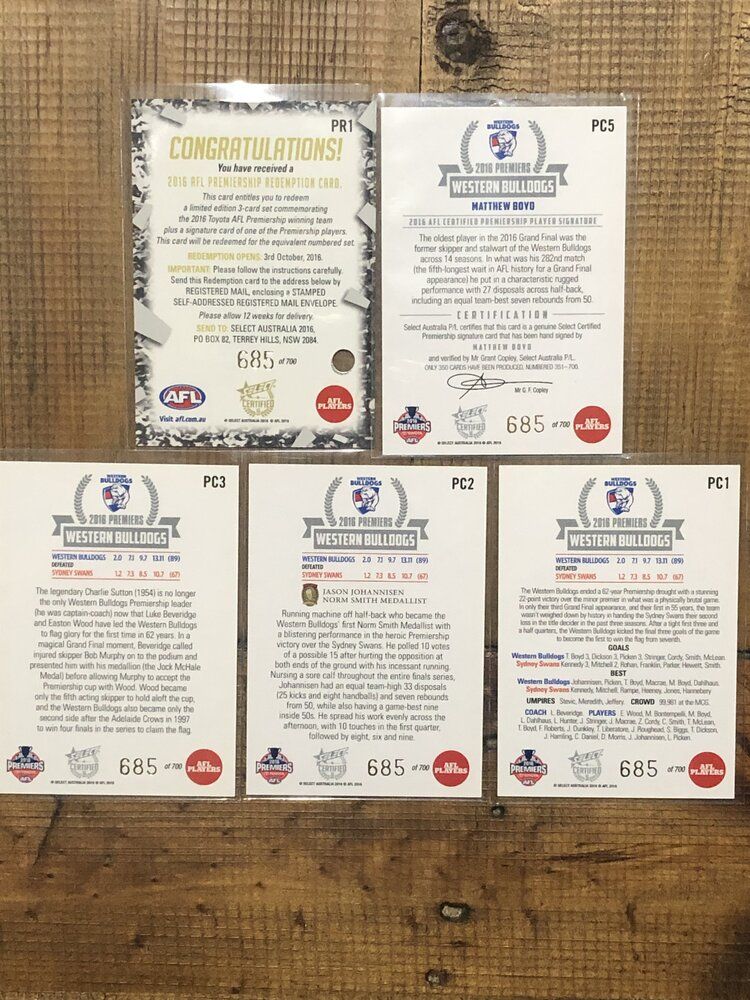 PR1
CONGRATULATIONS!
You have received a
2016 AFL PREMIERSHIP REDEMPTION CARD.
This card entitles you to redeem
a limited edition 3-card set commemorating
the 2016 Toyota AFL Premiership winning team
plus a signature card of one of the Premiership players.
This card will be redeemed for the equivalent numbered set.
REDEMPTION OPENS: 3rd October, 2016.
IMPORTANT: Please follow the instructions carefully.
Send this Redemption card to the address below by
REGISTERED MAIL, enclosing a STAMPED
SELF-ADDRESSED REGISTERED MAIL ENVELOPE.
Please allow 12 weeks for delivery.
SEND TO: SELECT AUSTRALIA 2016,
PO BOX 82, TERREY HILLS, NSW 2084.
685 of 700
AFL
SELECT
CERTIFIED
AFL
PLAYERS
Visit afl.com.au
© SELECT AUSTRALIA 2016 © AFL 2016
PC5
WESTERN
BULLDOGS
2016 PREMIERS
WESTERN BULLDOGS
MATTHEW BOYD
2016 AFL CERTIFIED PREMIERSHIP PLAYER SIGNATURE
The oldest player in the 2016 Grand Final was the
former skipper and stalwart of the Western Bulldogs
across 14 seasons. In what was his 282nd match
(the fifth-longest wait in AFL history for a Grand Final
appearance) he put in a characteristic rugged
performance with 27 disposals across half-back,
including an equal team-best seven rebounds from 50.
CERTIFICATION
Select Australia P/L certifies that this card is a genuine Select Certified
Premiership signature card that has been hand signed by
MATTHEW BOYD
and verified by Mr Grant Copley, Select Australia P/L.
ONLY 350 CARDS HAVE BEEN PRODUCED, NUMBERED 351-700.
Mr G. F. Copley
2016
PREMIERS
AFL
SELECT
CERTIFIED
685 of 700
AFL
PLAYERS
© SELECT AUSTRALIA 2016 © AFL 2016
PC3
WESTERN
BULLDOGS
2016 PREMIERS
WESTERN BULLDOGS
WESTERN BULLDOGS 2.0 7.1 9.7 13.11 (89)
DEFEATED
SYDNEY SWANS 1.2 7.3 8.5 10.7 (67)
The legendary Charlie Sutton (1954) is no longer
the only Western Bulldogs Premiership leader
(he was captain-coach) now that Luke Beveridge
and Easton Wood have led the Western Bulldogs
to flag glory for the first time in 62 years. In a
magical Grand Final moment, Beveridge called
injured skipper Bob Murphy on to the podium and
presented him with his medallion (the Jock McHale
Medal) before allowing Murphy to accept the
Premiership cup with Wood. Wood became
only the fifth acting skipper to hold aloft the cup,
and the Western Bulldogs also became only the
second side after the Adelaide Crows in 1997
to win four finals in the series to claim the flag.
2016
PREMIERS
AFL
SELECT
CERTIFIED
685 of 700
AFL
PLAYERS
© SELECT AUSTRALIA 2016 © AFL 2016
PC2
WESTERN
BULLDOGS
2016 PREMIERS
WESTERN BULLDOGS
WESTERN BULLDOGS 2.0 7.1 9.7 13.11 (89)
DEFEATED
SYDNEY SWANS 1.2 7.3 8.5 10.7 (67)
JASON JOHANNISEN
NORM SMITH MEDALLIST
Running machine off half-back who became the
Western Bulldogs' first Norm Smith Medallist with
a blistering performance in the heroic Premiership
victory over the Sydney Swans. He polled 10 votes
of a possible 15 after hurting the opposition at
both ends of the ground with his incessant running.
Nursing a sore calf throughout the entire finals series,
Johannisen had an equal team-high 33 disposals
(25 kicks and eight handballs) and seven rebounds
from 50, while also having a game-best nine
inside 50s. He spread his work evenly across the
afternoon, with 10 touches in the first quarter,
followed by eight, six and nine.
2016
PREMIERS
AFL
SELECT
CERTIFIED
685 of 700
AFL
PLAYERS
© SELECT AUSTRALIA 2016 © AFL 2016
PC1
WESTERN
BULLDOGS
2016 PREMIERS
WESTERN BULLDOGS
WESTERN BULLDOGS 2.0 7.1 9.7 13.11 (89)
DEFEATED
SYDNEY SWANS 1.2 7.3 8.5 10.7 (67)
The Western Bulldogs ended a 62-year Premiership drought with a stunning
22-point victory over the minor premier in what was a physically brutal game.
In only their third Grand Final appearance, and their first in 55 years, the team
wasn't weighed down by history in handing the Sydney Swans their second
loss in the title decider in the past three seasons. After a tight first three and
a half quarters, the Western Bulldogs kicked the final three goals of the game
to become the first to win the flag from seventh.
GOALS
Western Bulldogs T. Boyd 3, Dickson 3, Picken 3, Stringer, Cordy, Smith, McLean.
Sydney Swans Kennedy 3, Mitchell 2, Rohan, Franklin, Parker, Hewett, Smith.
BEST
Western Bulldogs Johannisen, Picken, T. Boyd, Macrae, M. Boyd, Dahlhaus.
Sydney Swans Kennedy, Mitchell, Rampe, Heeney, Jones, Hannebery
UMPIRES Stevic, Meredith, Jeffery CROWD 99,981 at the MCG.
COACH L. Beveridge. PLAYERS E. Wood, M. Bontempelli, M. Boyd,
L. Dahlhaus, L. Hunter, J. Stringer, J. Macrae, Z. Cordy, C. Smith, T. McLean,
T. Boyd, F. Roberts, J. Dunkley, T. Liberatore, J. Roughead, S. Biggs, T. Dickson,
J. Hamling, C. Daniel, D. Morris, J. Johannisen, L. Picken.
2016
PREMIERS
AFL
SELECT
CERTIFIED
685 of 700
AFL
PLAYERS
© SELECT AUSTRALIA 2016 © AFL 2016